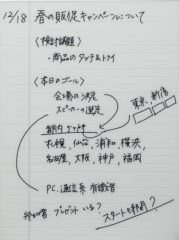 12/18 春の販促キャンペーンについて
〈検討課題〉
・商品のタッチ&トライ
〈本日のゴール〉
会場の決定
スピーカーの選定
東京、新宿
札幌、仙台、浦和、横浜、
名古屋、大阪、神戸、福岡
PC、通信系 有識者
参加者 プレゼント いる?
スタート時間?